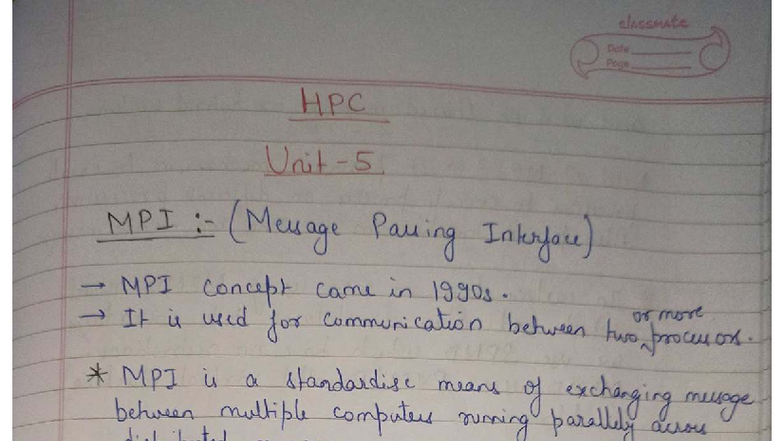 classmate
Date
Page
HPC
Unit-5
MPI :- (Message Passing Interface)
→ MPI concept came in 1990s.
→ It is used for communication between two or more processors.
* MPI is a standardise means of exchanging message
between multiple computers running parallely across
distributed